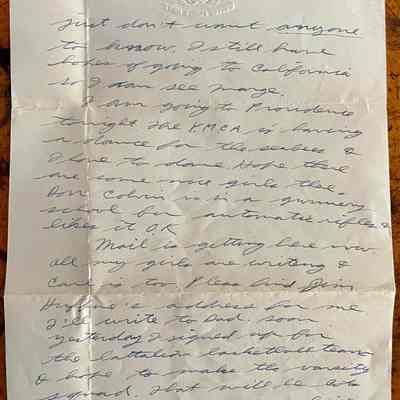 Just don't want anyone
to know. I still have
hopes of going to California
so I can see Marge.
I am going to Providence
tonight the Y.M.C.A. is having
a dance for the seabees &
I love to dance. Hope there
are some nice girls there.
Don Colvin is in a gunnery
school for automatic rifles &
likes it OK
Mail is getting here now.
all my girls are writing &
Carl is too. Pleas find Jim
address for me
I'll write to Dad soon.
yesterday I signed up for
the battalion basketball team
& hope to make the varsity
squad. That will be